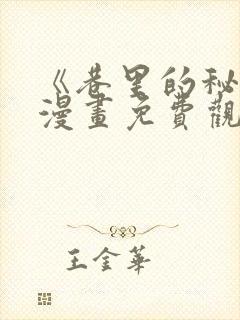 《巷里的秘
漫畫免費觀
王金華